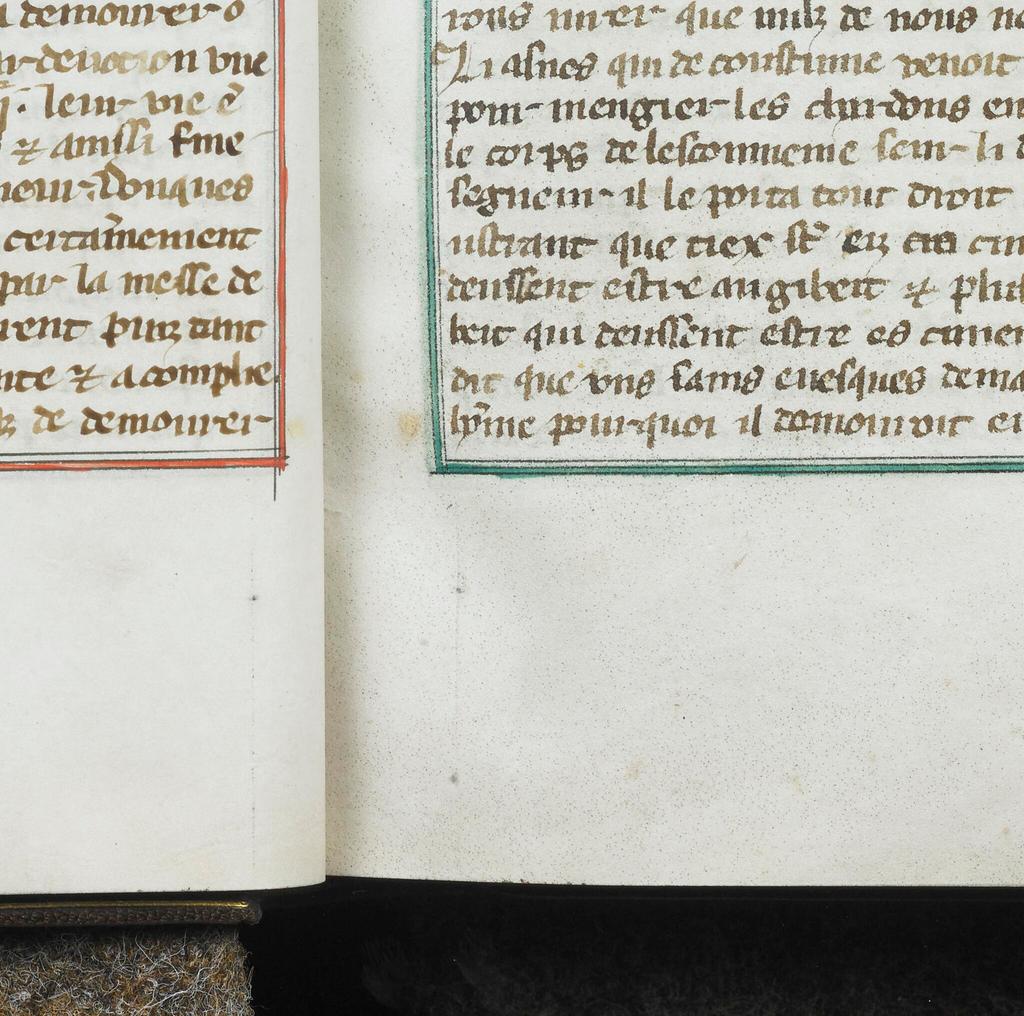 demourer o
deuotion vne
leur vie ē
⁊ ainssi fine
neur. Donques
certainement
par la messe de
rent puiz tant
nte ⁊ acomplie
de demourer
que nulz de nous
Li asnes qui de coustume venoit
pour mengier les chardons en
le corps de lescommenie seur li
segneur il le porta tout droit
que tiex
deussent estre au gibeit ⁊ plus
beit qui deussent estre es
dit que vns sains euesques
pourquoi il domouroit en